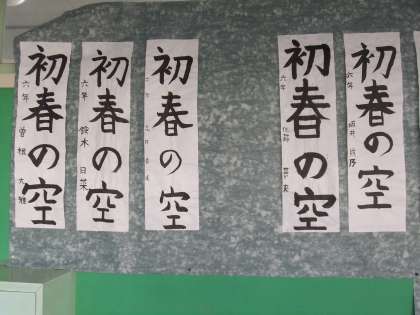 初春の空
六年 曽根 大雅
初春の空
六年 鈴木 日菜
初春の空
初春の空
六年
初春の空
六年 坂井